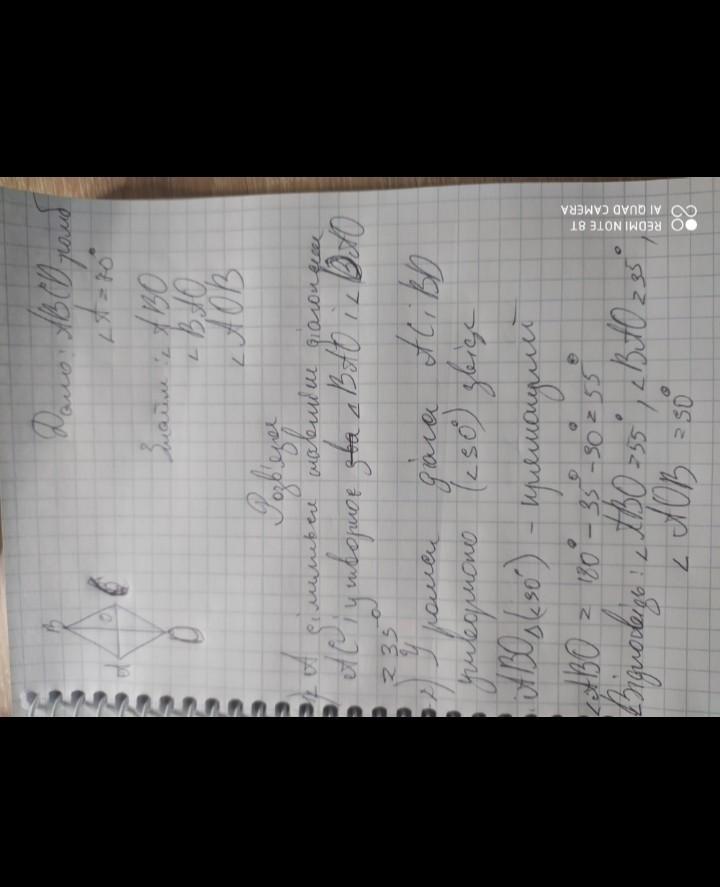 Дано: ABCD ромб
∠A = 70°
Знайти: ∠ABO
∠BAO
∠AOB
B
A
O
D
Розв'язок
1) ∠A ділиться навпіл діагоналлю
AC і утворює ∠BAO і ∠DAO
= 35°
2) У ромбі AC і BD
утворюють (∠90°) звідси
ABO△(∠90°) – прямокутний
∠ABO = 180° – 35° – 90° = 55°
Відповідь: ∠ABO = 55°, ∠BAO = 35°,
∠AOB = 90°
REDMI NOTE 8T
AI QUAD CAMERA